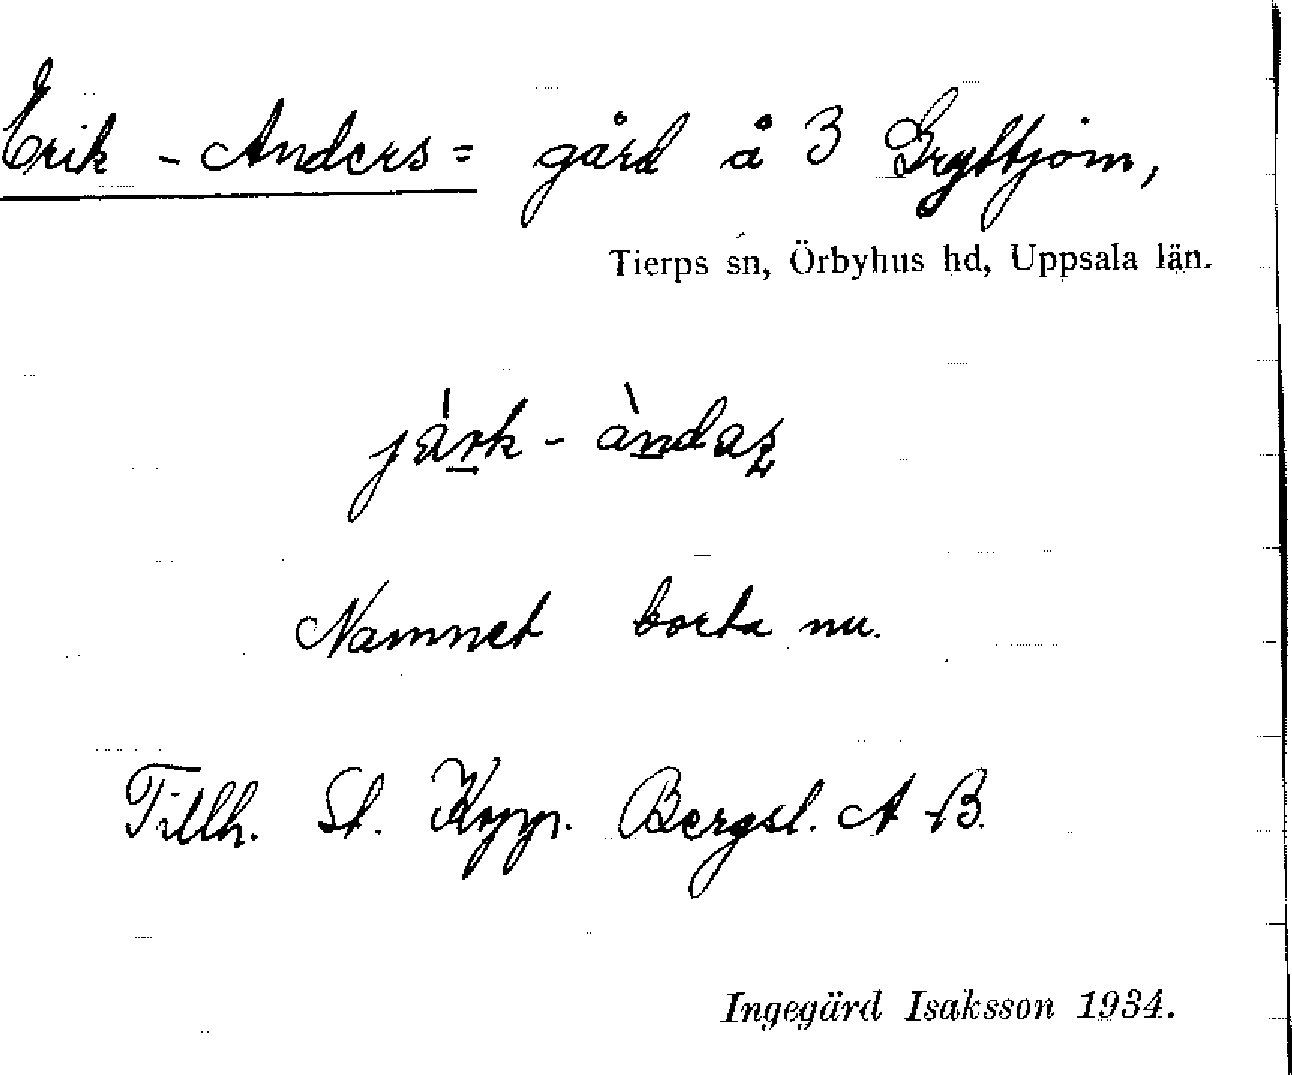 Erik - Anders = gård å 3 Gryttjom,
Tierps sn, Örbyhus hd, Uppsala län.
järk - àndaʂ
Namnet borta nu.
Tillh. St. Kopp. Bergsl. A-B.
Ingegärd Isaksson 1934.